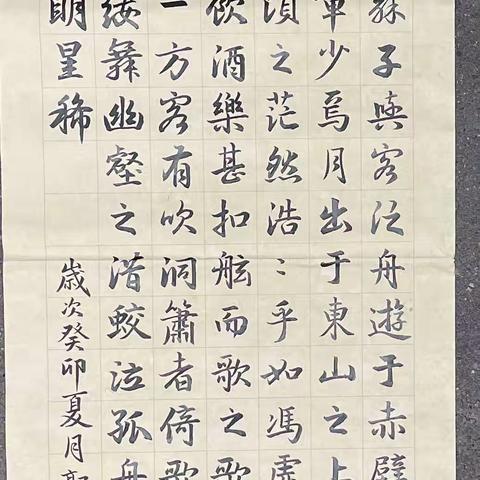 蘇子與客泛舟遊于赤壁
章少焉月出于東山之上
頃之茫然浩〻乎如馮虛
飲酒樂甚扣舷而歌之歌
一方客有吹洞簫者倚歌
縷舞幽壑之潛蛟泣孤舟
明星稀
歲次癸卯夏月